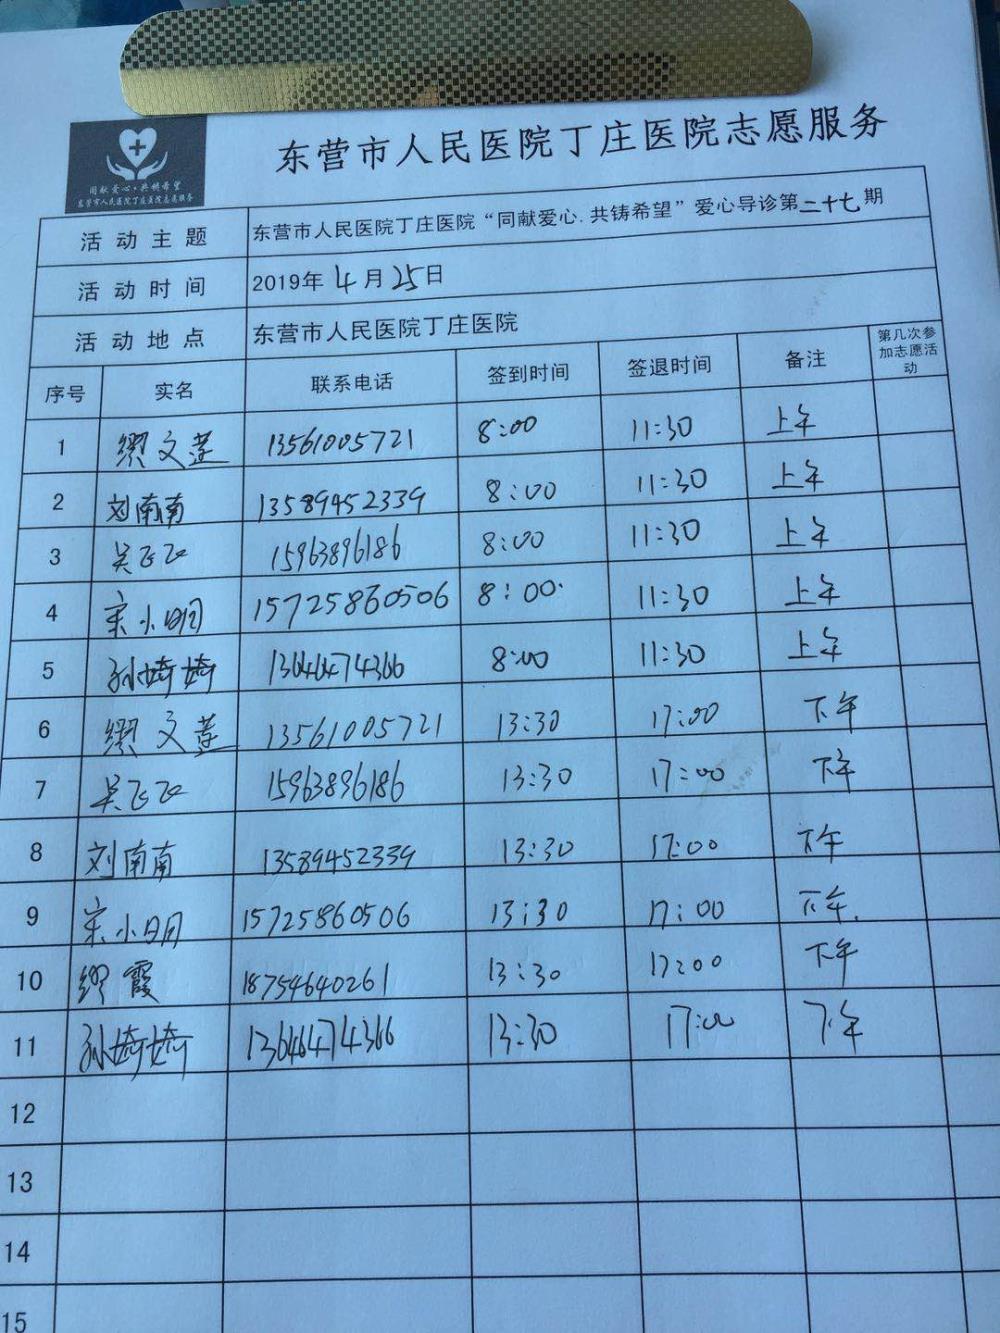 东营市人民医院丁庄医院志愿服务
同献爱心·共铸希望
东营市人民医院丁庄医院志愿服务
活动主题 东营市人民医院丁庄医院“同献爱心.共铸希望”爱心导诊第二十七期
活动时间 2019年4月25日
活动地点 东营市人民医院丁庄医院
序号 实名 联系电话 签到时间 签退时间 备注 第几次参加志愿活动
1 缪文莲 13561005721 8:00 11:30 上午
2 刘南南 13589452339 8:00 11:30 上午
3 吴飞飞 15963896186 8:00 11:30 上午
4 宋小明 15725860506 8:00 11:30 上午
5 孙婷婷 13646474366 8:00 11:30 上午
6 缪文莲 13561005721 13:30 17:00 下午
7 吴飞飞 15963896186 13:30 17:00 下午
8 刘南南 13589452339 13:30 17:00 下午
9 宋小明 15725860506 13:30 17:00 下午.
10 缪霞 18754640261 13:30 17:00 下午
11 孙婷婷 13646474366 13:30 17:00 下午
12
13
14
15